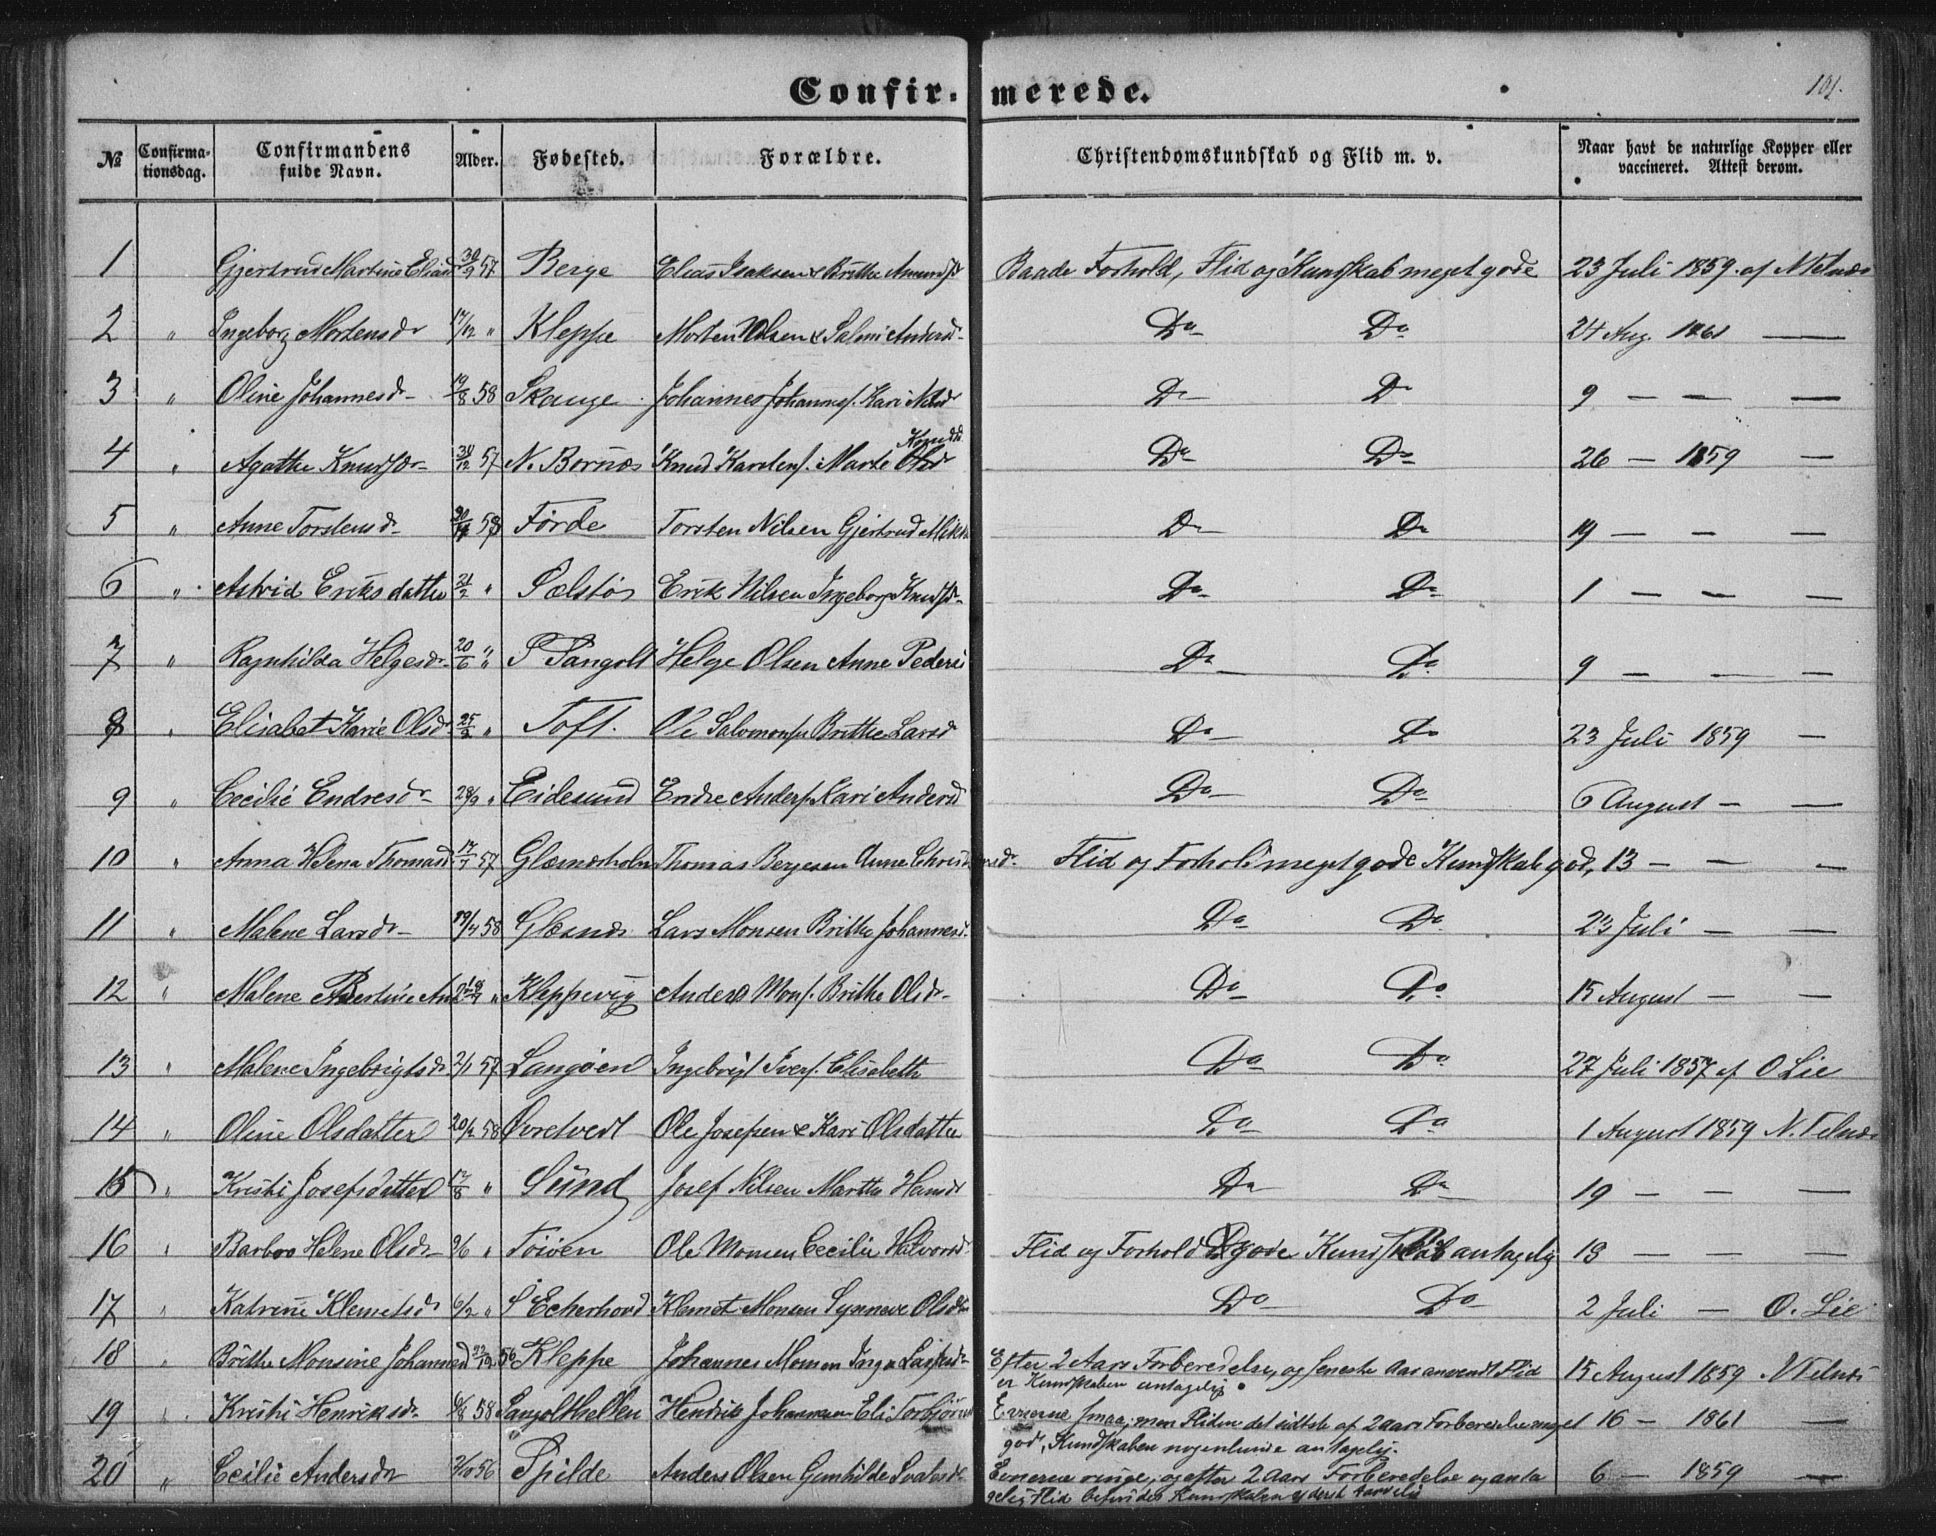 Confirmerede.
101.
№ Confirmationsdag. Confirmandens fulde Navn. Alder. Fødested. Forældre. Christendomskundskab og Flid m. v. Naar havt de naturlige Kopper eller vaccineret. Attest derom.
1 Gjertrud Martine Eliasd 57 Berge Elias Isaksen & Brithe Amunds Baade Forhold, Flid og Kundskab meget gode 23 Juli 1859 af N Telnæs
2 " Ingeborg Mortensdr 17/12 " Kleppe Morten Olsen & Salmi Andersd Do Do 24 Aug. 1861 —
3 " Oline Johannesdr 19/8 58 Skauge Johannes Johannes. Kari Nilsd Do Do 9 — — —
4 " Agathe Knudsdr 57 N. Bornæs Knud Karstens. Marte Knudsd Do Do 26 — 1859 —
5 " Anne Torstensdr 58 Førde Torsten Nilsen Gjertrud Do Do 19 — — —
6 " Astrid Eriksdatter 21/2 " Pælstø Erik Nilsen Ingeborg Knudsdr Do Do 1 — — —
7 " Ragnhilda Helgesdr 20/6 " S Sangolt Helge Olsen Anne Peders Do Do 9 — — —
8 " Elisabet Karie Olsdr 25/2 " Toft. Ole Salomons Brithe Larsd Do Do 23 Juli 1859 —
9 " Cecilie Endresdr 28/9 " Eidesund Endre Anders. Kari Andersd Do Do 6 August — —
10 " Anna Helena Thomasd 57 Glesnæsholm Thomas Bergesen Anne Christensd Flid og Forhold meget gode Kundskab god, 13 — — —
11 " Malene Larsdr 19/4 58 Glesnæs Lars Monsen Brithe Johannesd. Do Do 23 Juli — —
12 " Malene Bertine " Kleppevig Anders Mons. Brithe Olsdr Do Do 15 August — —
13 " Malene Ingebrigtsdr 2/1 57 Langøen Ingebrigt Ivers. Elisabeth Do Do 27 Juli 1857 af O Lie
14 " Oline Olsdatter 20/2 58 Øvretvedt Ole Josepsen & Kari Olsdatter Do Do 1 August 1859 N. Telnæs
15 " Kristi Josefsdatter 17/8 " Sund Josef Nilsen Martha Hansd Do Do 19 — — —
16 " Barbro Helene Olsdr " Toiøen Ole Monsen Cecilie Halvorsd. Flid og Forhold gode Kundskab antagelig 13 — — —
17 " Katrine Klemetsdr 6/2 " S Eckerhovd Klemet Monsen Synneve Olsdr Do Do 2 Juli — O. Lie
18 " Brithe Monsine Johannesd 22/12 56 Kleppe Johannes Monsen Inga Efter 2 Aars Forberedelse, og seneste Aar anvendt Flid
er Kundskaben antagelig. 15 August 1859 N Telnæs
19 " Kristi Henriksdr 58 Sangolthellen Hendrik Johannesen Eli Torbjørns Evnerne smaa; men Fliden det sidste af 2 aars Forberedelse meget
god, Kundskaben nogenlunde antagelig. 16 — 1861 —
20 " Cecilie Andersdr 2/10 56 Spilde Anders Olsen Gunhilde Evnerne ringe, og efter 2 Aars Forberedelse og anta
gelig Flid befandtes Kundskaben 6 — 1859 —